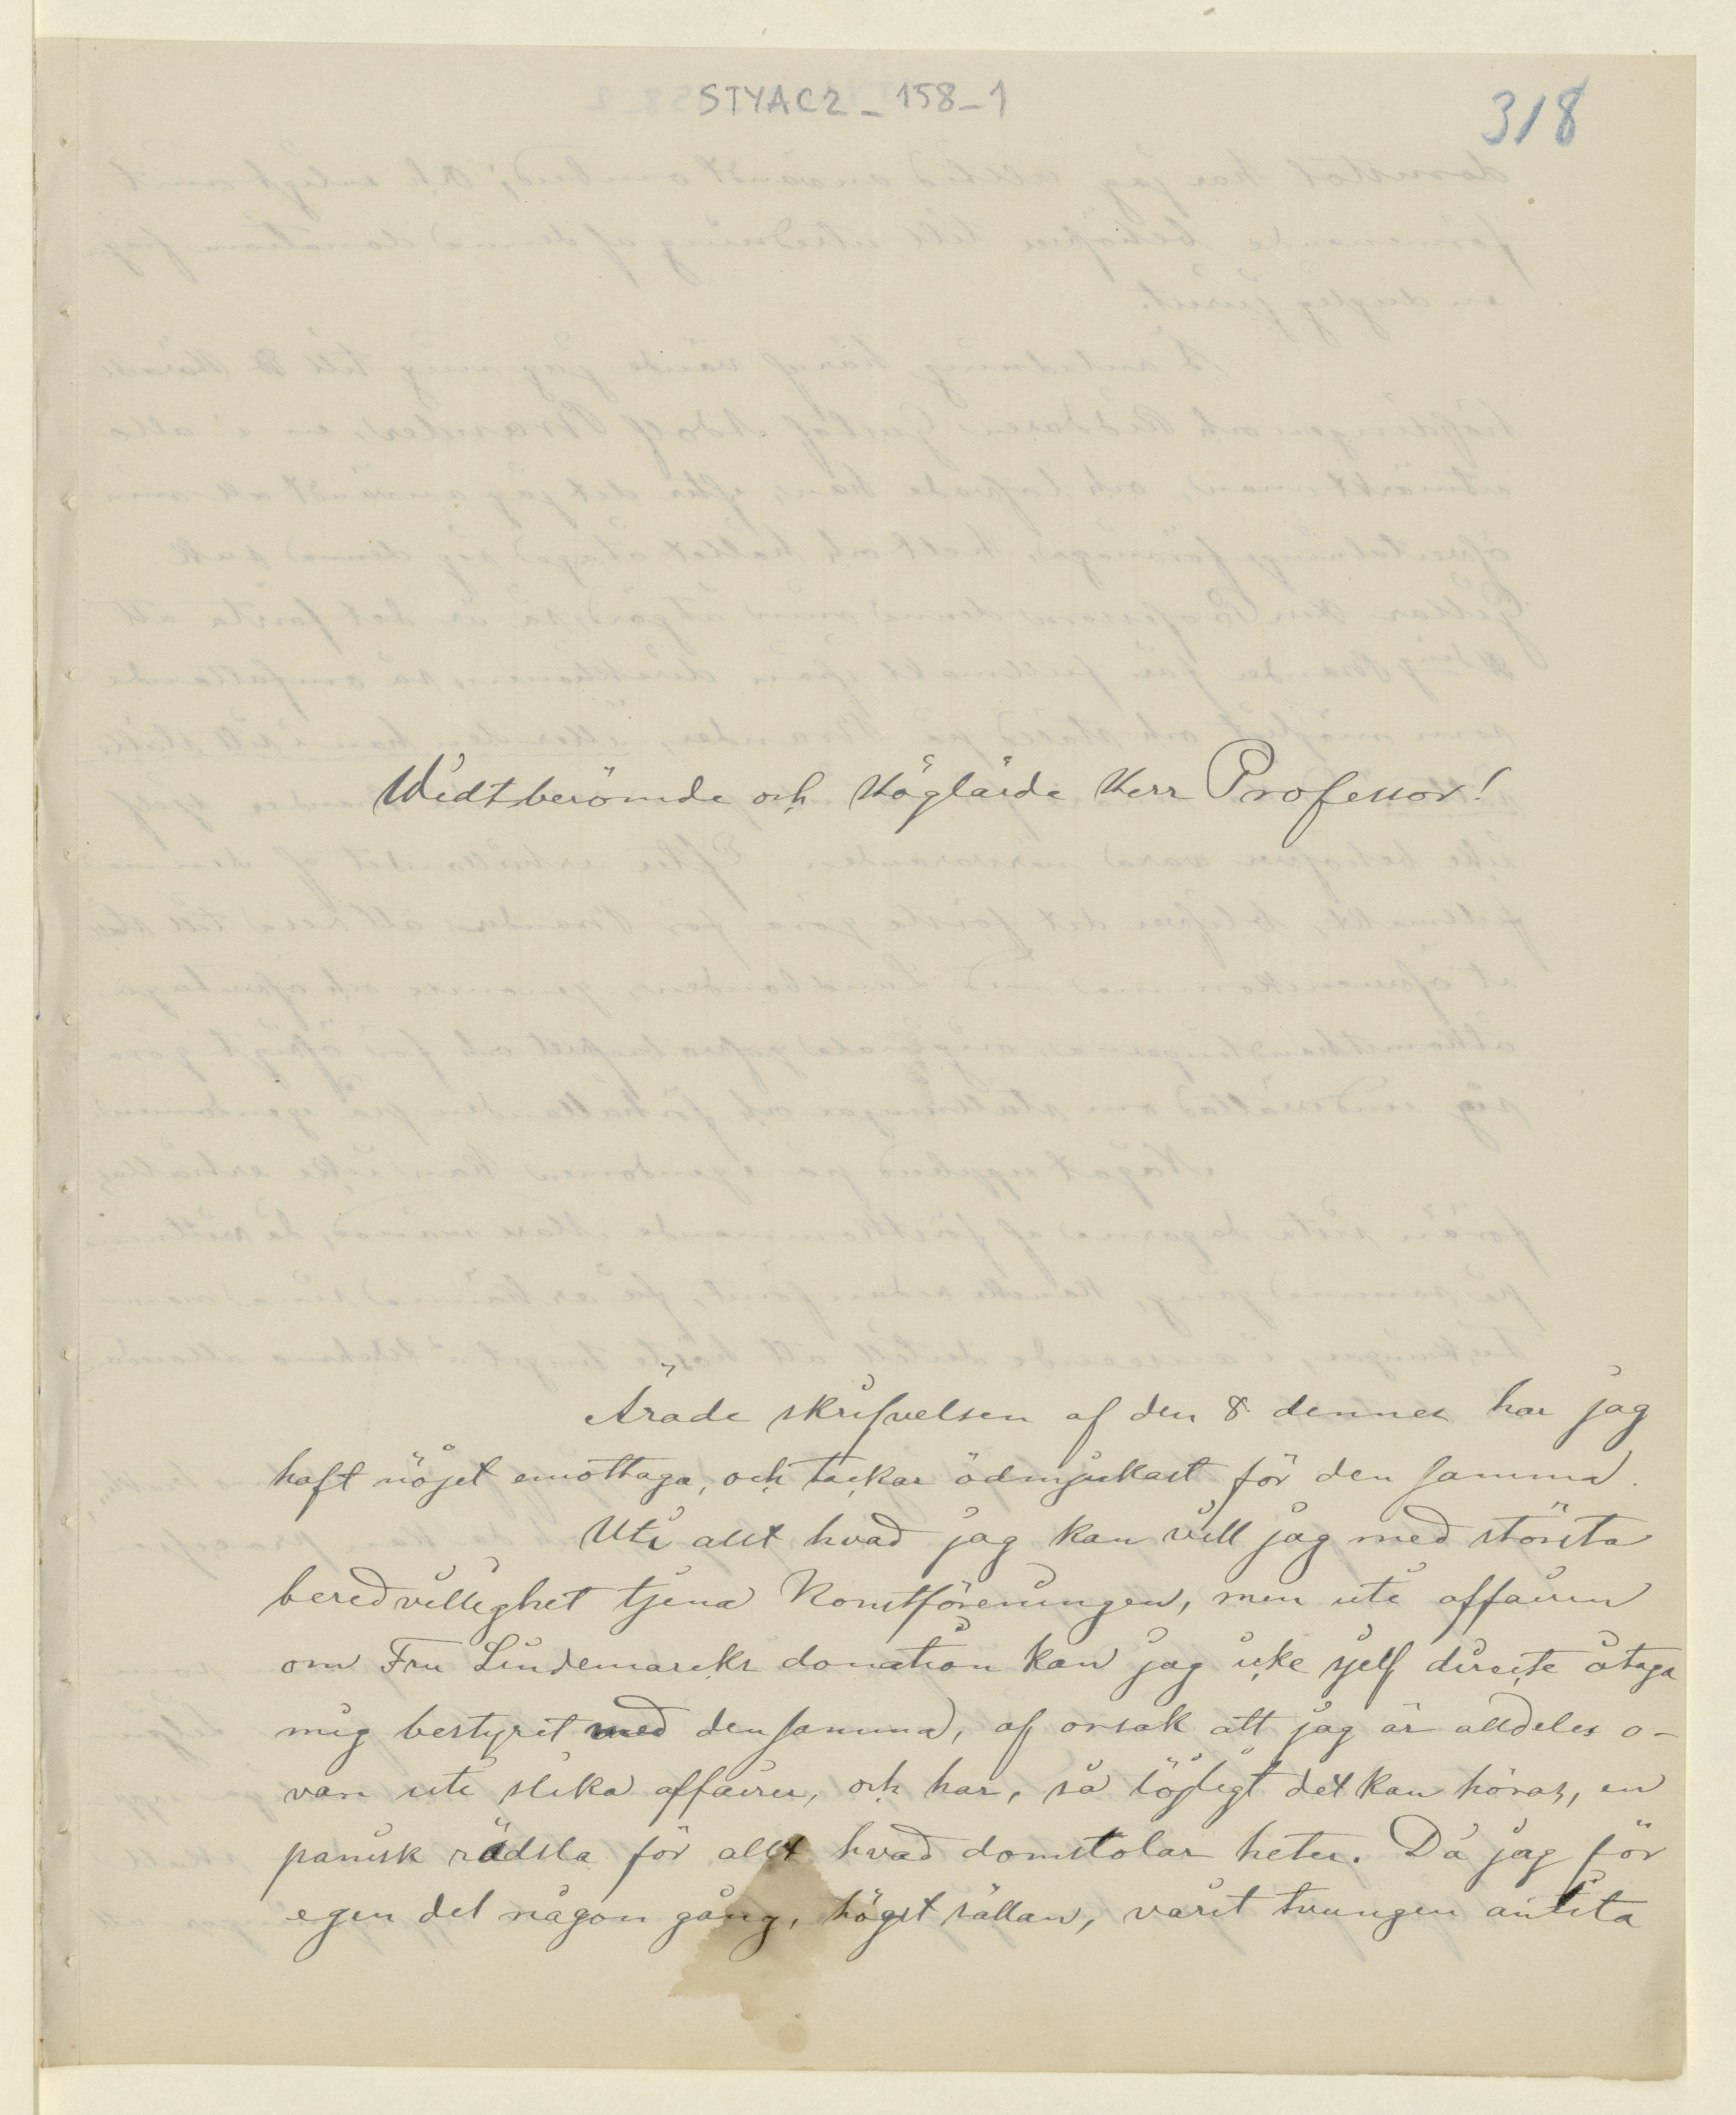 STYAC2_158_1
318
Widtberömde och Höglärde Herr Professor!
Ärade skrifvelsen af den 8 dennes har jag
haft nöjet emottaga, och tackar ödmjukast för den samma.
Uti allt hvad jag kan vill jag med största
beredvillighet tjena Konstföreningen, men uti affairen
om Fru Lindemarcks donation kan jag icke sjelf directe åtaga
mig bestyret med den samma, af orsak att jag är alldeles o-
van uti slika affairer, och har, så löjligt det kan höras, en
panisk rädsla för allt hvad domstolar heter. Då jag för
egen del någon gång, högst sällan, varit tvungen anlita